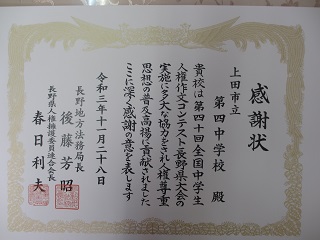 感謝状
上田市立
第四中学校 殿
貴校は第四十回全国中学生
人権作文コンテスト長野県大会の
実施に多大な協力をされ人権尊重
思想の普及高揚に貢献されました
ここに深く感謝の意を表します
令和三年十一月二十八日
長野地方法務局長
後藤芳昭
長野県人権擁護委員連合会会長
春日利夫